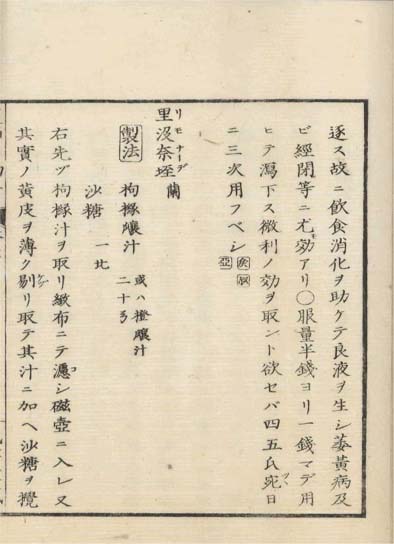 逐ス故ニ飲食消化ヲ助ケテ良液ヲ生シ萎黄病及
ビ經閉等ニ尤モ効アリ〇服量半錢ヨリ一錢マデ用
ヒテ瀉下ス微利ノ効ヲ取ント欲セバ四五氏宛日
ニ二三次用フベシ 亞
里没奈垤 リモナーデ 蘭
製法 枸櫞瓤汁 或ハ橙瓤汁 二十
沙糖 一
右先ヅ枸櫞汁ヲ取リ緻布ニテ濾シ磁壺ニ入レ又
其實ノ黄皮ヲ薄ク剔リ取テ其汁ニ加ヘ沙糖ヲ攪